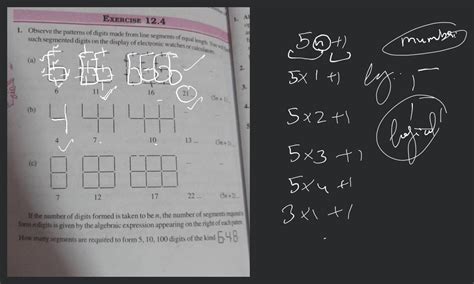 EXERCISE 12.4
1. Observe the patterns of digits made from line segments of equal length. You will find
such segmented digits on the display of electronic watches or calculators.
(a)
6 11 16 21 (5n + 1)
(b)
4 7 10 13 ... (3n + 1)
(c)
7 12 17 22 ... (5n + 2)
If the number of digits formed is taken to be n, the number of segments required to
form n digits is given by the algebraic expression appearing on the right of each pattern.
How many segments are required to form 5, 10, 100 digits of the kind 6 4 8
2.
3.
4.
5n+1
5×1+1
5×2+1
5×3+1
5×4+1
3×1+1
number
logical